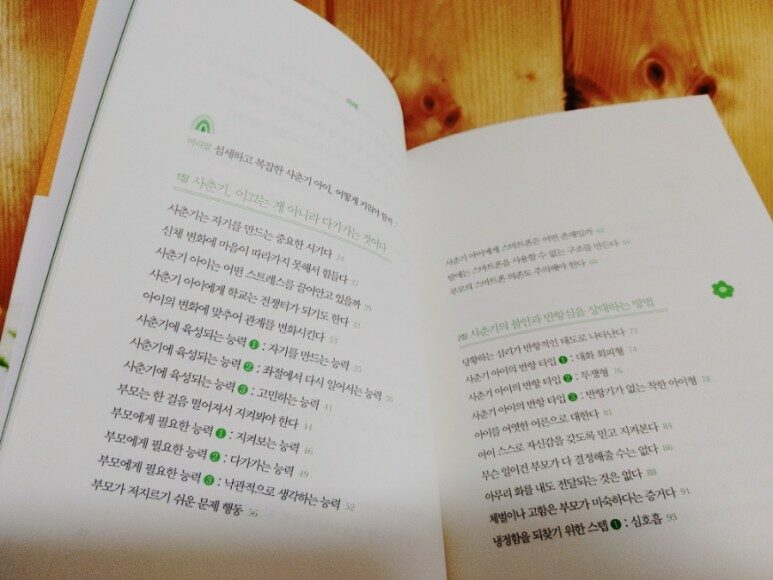 차례
머리말 섬세하고 복잡한 사춘기 아이, 어떻게 키워야 할까
1장 사춘기, 이끄는 게 아니라 다가가는 것이다
사춘기는 자기를 만드는 중요한 시기다 24
신체 변화에 마음이 따라가지 못해서 힘들다 27
사춘기 아이는 어떤 스트레스를 끌어안고 있을까 29
사춘기 아이에게 학교는 전쟁터가 되기도 한다 31
아이의 변화에 맞추어 관계를 변화시킨다 33
사춘기에 육성되는 능력 1 : 자기를 만드는 능력 35
사춘기에 육성되는 능력 2 : 좌절에서 다시 일어서는 능력 38
사춘기에 육성되는 능력 3 : 고민하는 능력 41
부모는 한 걸음 떨어져서 지켜봐야 한다 44
부모에게 필요한 능력 1 : 지켜보는 능력 46
부모에게 필요한 능력 2 : 다가가는 능력 49
부모에게 필요한 능력 3 : 낙관적으로 생각하는 능력 52
부모가 저지르기 쉬운 문제 행동 56
사춘기 아이에게 스마트폰은 어떤 존재일까
밤에는 스마트폰을 사용할 수 없는 구조를 만든다 64
부모의 스마트폰 의존도 주의해야 한다 68
2장 사춘기의 불안과 반항심을 상대하는 방법
당황하는 심리가 반항적인 태도로 나타난다 72
사춘기 아이의 반항 타입 1 : 대화 회피형
사춘기 아이의 반항 타입 2 : 투쟁형
사춘기 아이의 반항 타입 3 : 반항기가 없는 착한 아이형 78
아이를 어엿한 어른으로 대한다 81
아이 스스로 자신감을 갖도록 믿고 지켜본다 84
무슨 일이건 부모가 다 결정해줄 수는 없다 86
아무리 화를 내도 전달되는 것은 없다 88
체벌이나 고함은 부모가 미숙하다는 증거다 91
냉정함을 되찾기 위한 스텝 1 : 심호흡 93